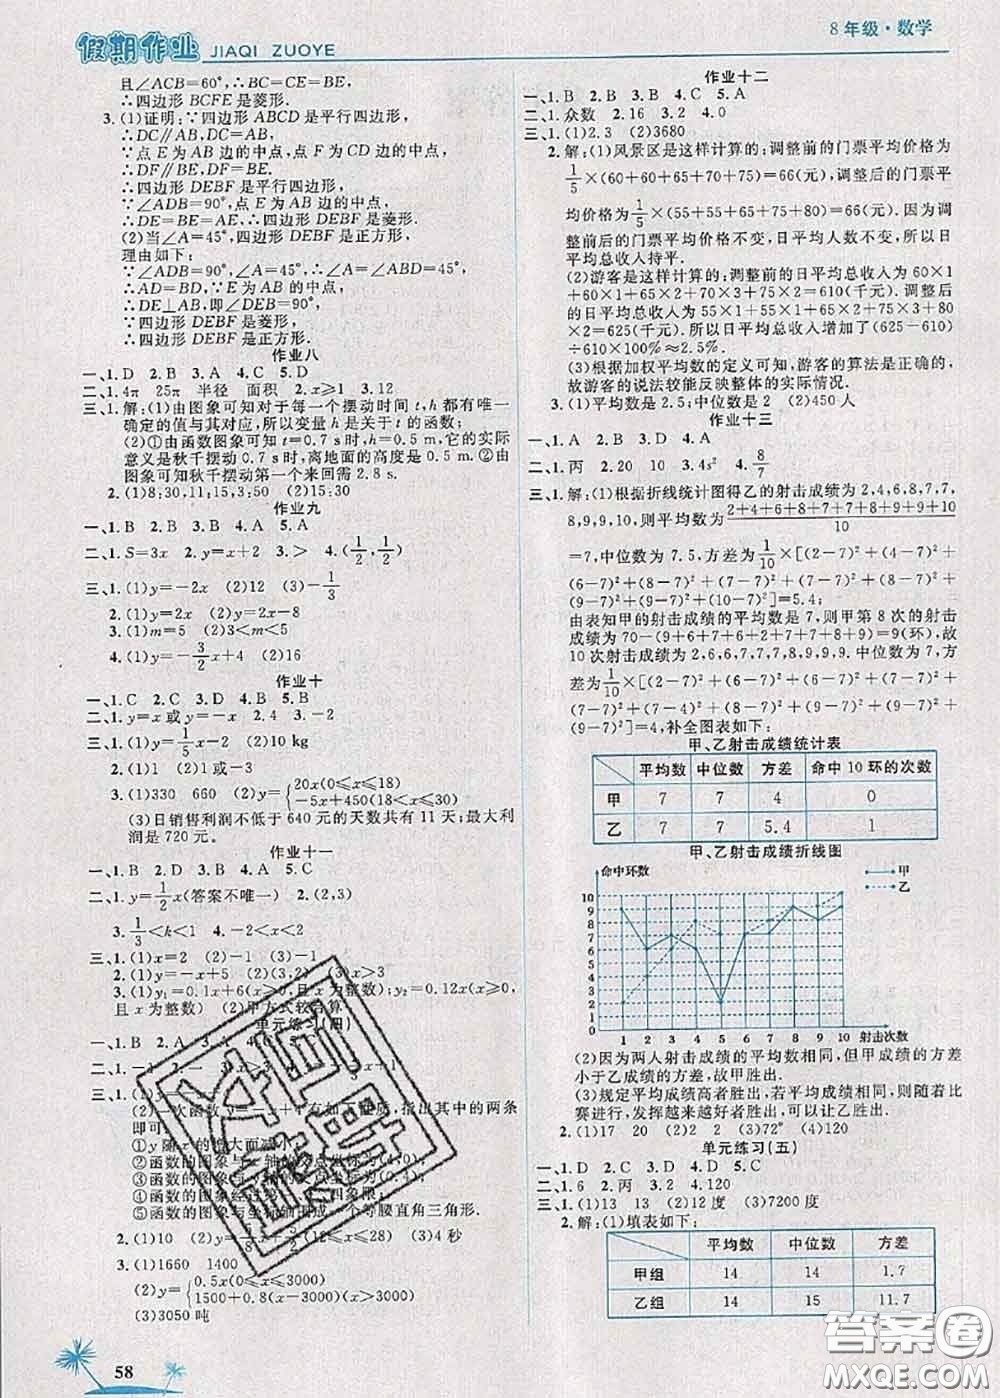 假期作业 JIAQI ZUOYE
8年级·数学
且∠ACB=60°,∴BC=CE=BE.
∴四边形 BCFE 是菱形.
3.(1)证明:∵四边形 ABCD 是平行四边形,
∴DC∥AB,DC=AB.
∵点 E 为 AB 边的中点,点 F 为 CD 边的中点,
∴DF∥BE,DF=BE.
∴四边形 DEBF 是平行四边形.
∵∠ADB=90°,点 E 为 AB 边的中点,
∴DE=BE=AE,∴四边形 DEBF 是菱形.
(2)当∠A=45°,四边形 DEBF 是正方形,
理由如下:
∵∠ADB=90°,∠A=45°,∴∠A=∠ABD=45°,
∴AD=BD,∵E 为 AB 的中点,
∴DE⊥AB,即∠DEB=90°,
∵四边形 DEBF 是菱形,
∴四边形 DEBF 是正方形.
作业八
一、1.D 2.B 3.A 4.C 5.D
二、1.4π 25π 半径 面积 2.x≥1 3.12
三、1.解:(1)由图象可知对于每一个摆动时间 t,h 都有唯一
确定的值与其对应,所以变量 h 是关于 t 的函数;
(2)①由函数图象可知 t=0.7 s时,h=0.5 m,它的实际
意义是秋千摆动 0.7 s时,离地面的高度是 0.5 m.②由
图象可知秋千摆动第一个来回需 2.8 s.
2.(1)8:30,11:15,3:50 (2)15:30
作业九
一、1.B 2.B 3.B 4.A 5.A
二、1.S=3x 2.y=x+2 3.> 4.(1/2,1/2)
三、1.(1)y=-2x (2)12 (3)-1/3
2.(1)y=2x (2)y=2x-8
3.(1)m=5 (2)3<m<5
4.(1)y=-3/2x+4 (2)16
作业十
一、1.C 2.C 3.D 4.B 5.B
二、1.y=x 或 y=-x 2.4 3.-2
三、1.(1)y=1/5x-2 (2)10 kg
2.(1)1 (2)1 或-3
3.(1)330 660 (2)y={20x(0≤x≤18)
-5x+450(18<x≤30)
(3)日销售利润不低于 640 元的天数共有 11 天;最大利
润是 720 元。
作业十一
一、1.B 2.D 3.A 4.B 5.C
二、1.y=1/2x(答案不唯一) 2.(2,3)
3.1/3<k<1 4.-1<x<2
三、1.(1)x=2 (2)-1 (3)-1
2.(1)y=-x+5 (2)(3,2) (3)x>3
3.(1)y₁=0.1x+6(x≥0,且 x 为整数);y₂=0.12x(x≥0,
且 x 为整数) (2)甲方式较合算
单元练习(四)
一、1.B 2.A
三、1.(1)
(2)一次函数 y=-x+4 有如下性质,指出其中的两条
即可:
①y 随 x 的增大而减小;
②函数的图象与 轴的交点坐标为(4,0);
③函数的图象与 轴的交点坐标为(0,4);
④函数的图象经过第 四象限;
⑤函数的图象与坐标轴围成一个等腰直角三角形.
2.(1)10 (12≤x≤28) (3)4 秒
3.(1)1660 1400
(2)y={0.5x(0<x≤3000)
1500+0.8(x-3000)(x>3000)
(3)3050 吨
58
作业十二
一、1.B 2.B 3.B 4.C 5.A
二、1.众数 2.16 3.2 4.0
三、1.(1)2.3 (2)3680
2.解:(1)风景区是这样计算的:调整前的门票平均价格为
1/5×(60+60+65+70+75)=66(元),调整后的门票平
均价格为1/5×(55+55+65+75+80)=66(元).因为调
整前后的门票平均价格不变,日平均人数不变,所以日平
均总收入持平.
(2)游客是这样计算的:调整前的日平均总收入为 60×1
+60×1+65×2+70×3+75×2=610(千元),调整后
的日平均总收入为 55×1+55×1+65×2+75×3+80
×2=625(千元).所以日平均总收入增加了(625-610)
÷610×100%≈2.5%.
(3)根据加权平均数的定义可知,游客的算法是正确的,
故游客的说法较能反映整体的实际情况.
3.(1)平均数是 2.5;中位数是 2 (2)450 人
作业十三
一、1.A 2.B 3.D 4.A
二、1.丙 2.20 10 3.4s² 4.8/7
三、1.解:(1)根据折线统计图得乙的射击成绩为 2,4,6,8,7,7,
8,9,9,10,则平均数为(2+4+6+8+7+7+8+9+9+10)/10
=7,中位数为 7.5,方差为1/10×[(2-7)²+(4-7)²+
(6-7)²+(8-7)²+(7-7)²+(7-7)²+(8-7)²+
(9-7)²+(9-7)²+(10-7)²]=5.4;
由表知甲的射击成绩的平均数是 7,则甲第 8 次的射击
成绩为 70-(9+6+7+6+2+7+7+8+9)=9(环),故
10 次射击成绩为 2,6,6,7,7,7,8,9,9,9.中位数为 7,方
差为1/10×[(2-7)²+(6-7)²+(6-7)²+(7-7)²+
(7-7)²+(7-7)²+(8-7)²+(9-7)²+(9-7)²+
(9-7)²]=4,补全图表如下:
甲、乙射击成绩统计表
平均数 中位数 方差 命中 10 环的次数
甲 7 7 4 0
乙 7 7 5.4 1
甲、乙射击成绩折线图
命中环数
甲
乙
10
9
8
7
6
5
4
3
2
1
0
1 2 3 4 5 6 7 8 9 10 射击次数
(2)因为两人射击成绩的平均数相同,但甲成绩的方差
小于乙成绩的方差,故甲胜出.
(3)规定平均成绩高者胜出,若平均成绩相同,则随着比
赛进行,发挥越来越好者胜出,可以让乙胜出.
2.(1)17 20 (2)2 2 (3)72° (4)120
单元练习(五)
一、1.D 2.C 3.A 4.D 5.C
二、1.6 2.丙 3.2 4.120
三、1.(1)13 13 (2)12度 (3)7200 度
2.解:(1)填表如下:
平均数 中位数 方差
甲组 14 14 1.7
乙组 14 15 11.7
答案圈
MXQE.COM